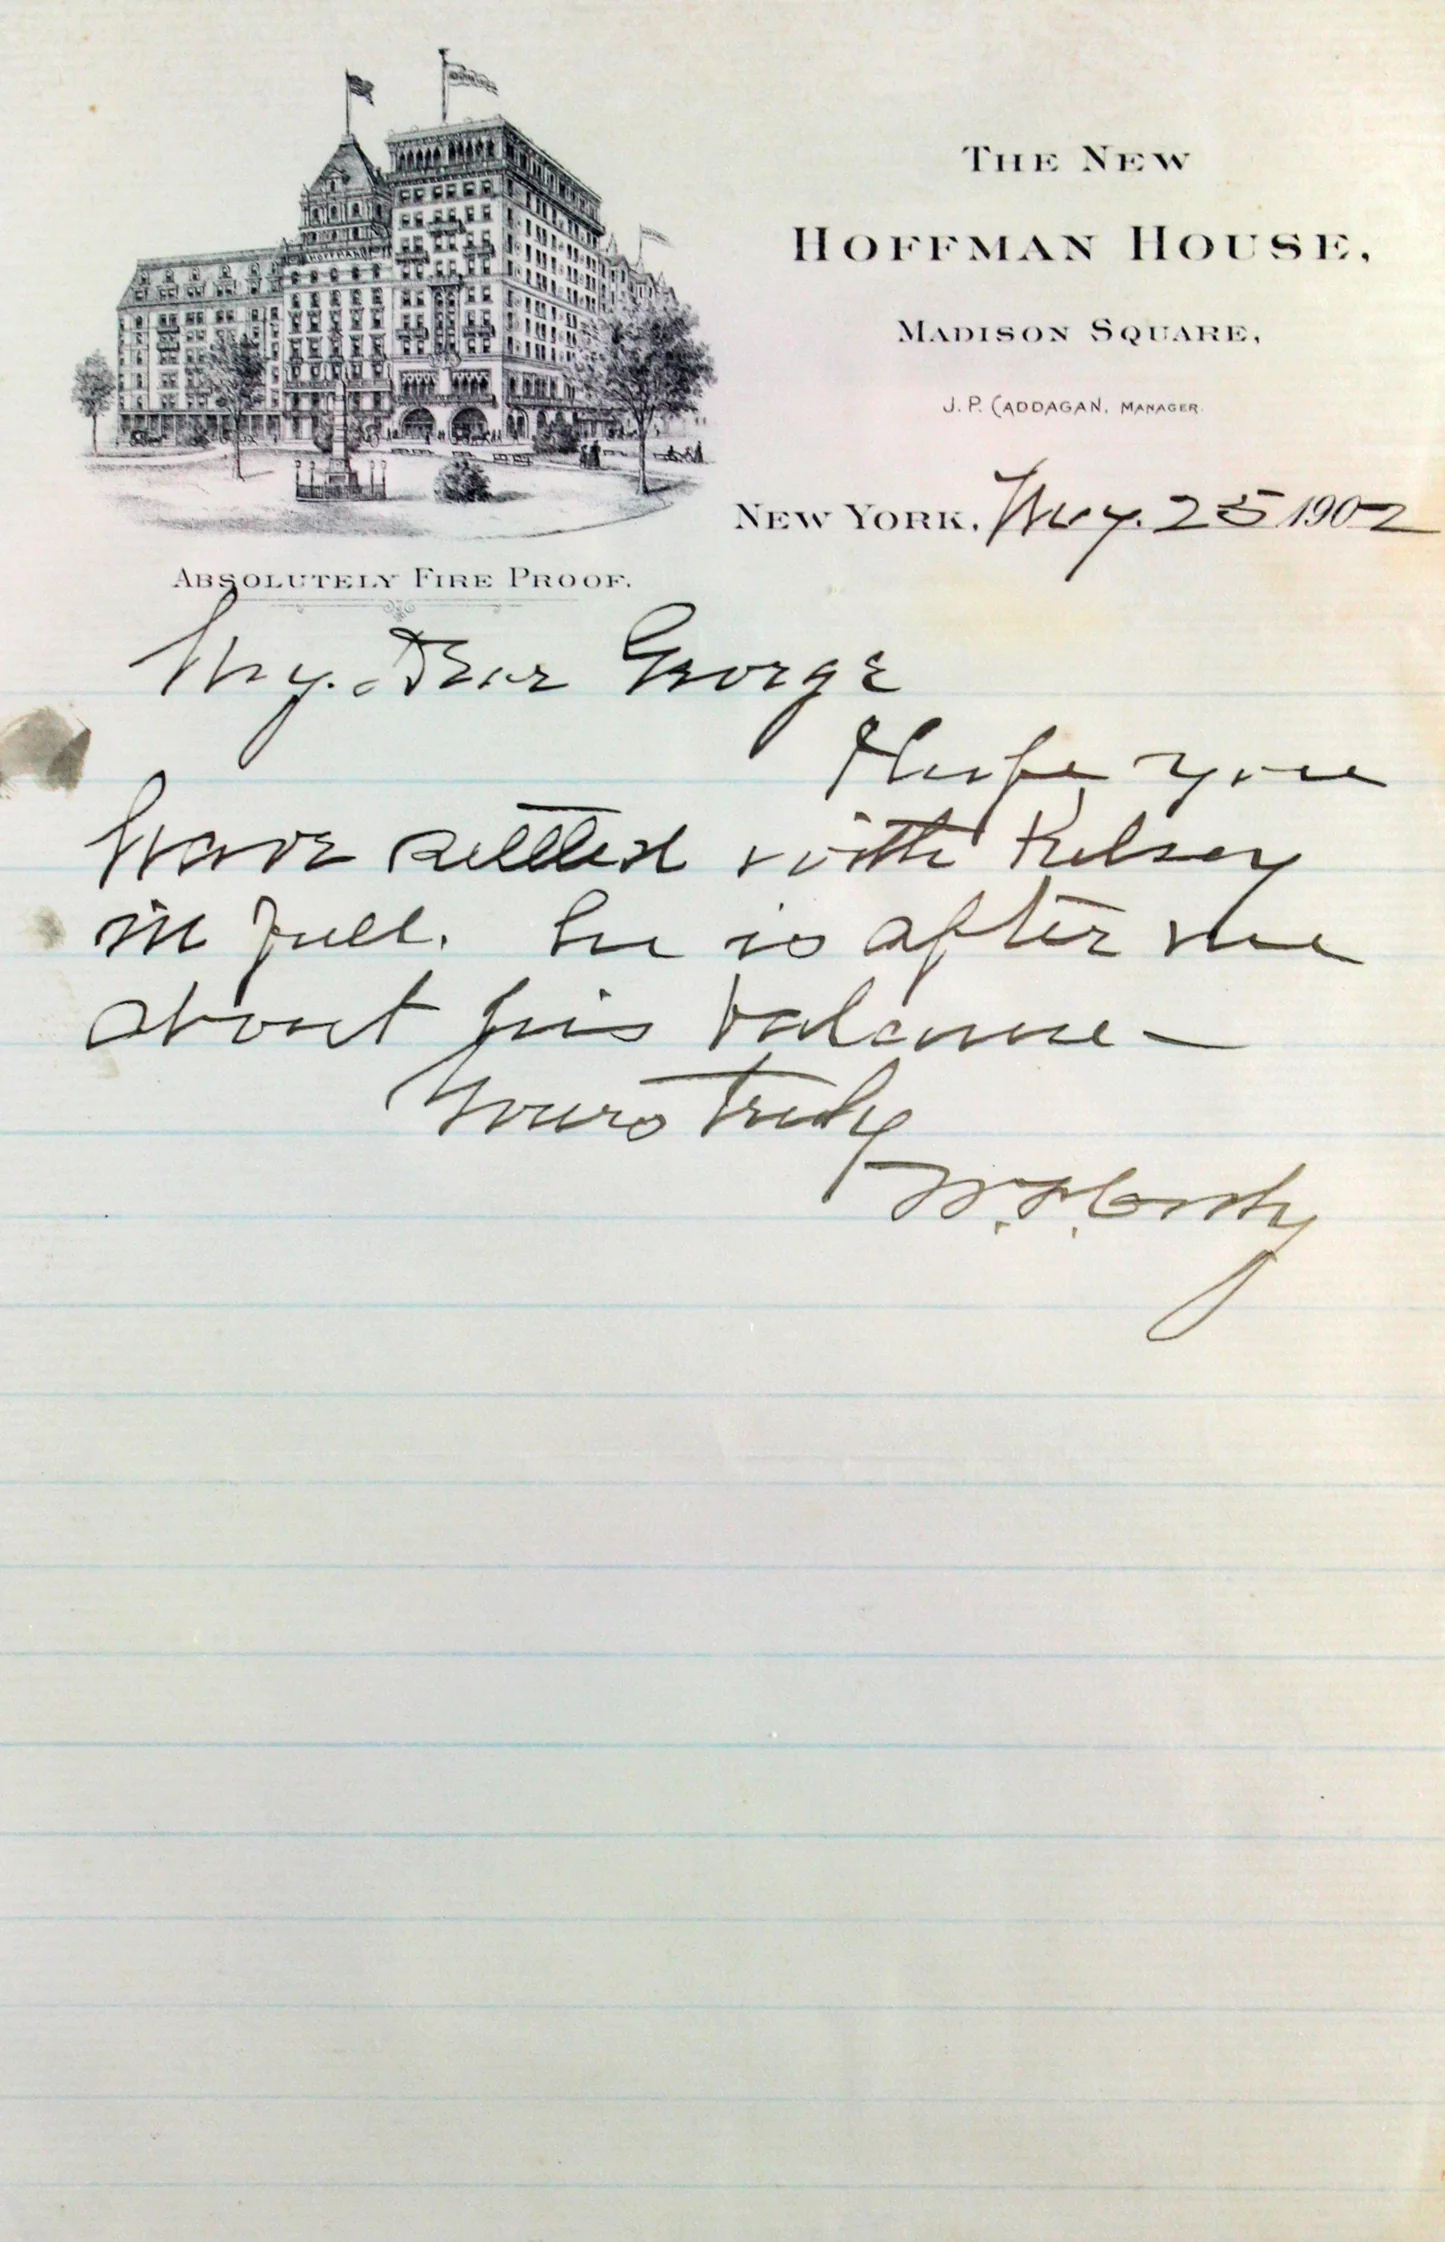 THE NEW
HOFFMAN HOUSE,
MADISON SQUARE,
J. P. CADDAGAN, MANAGER.
NEW YORK, May. 25 1902
HOFFMAN
ABSOLUTELY FIRE PROOF.
My. Dear George
Hope you
have settled with Kelsey
in full. he is after me
about his balance—
Yours truly
W. F. Cody